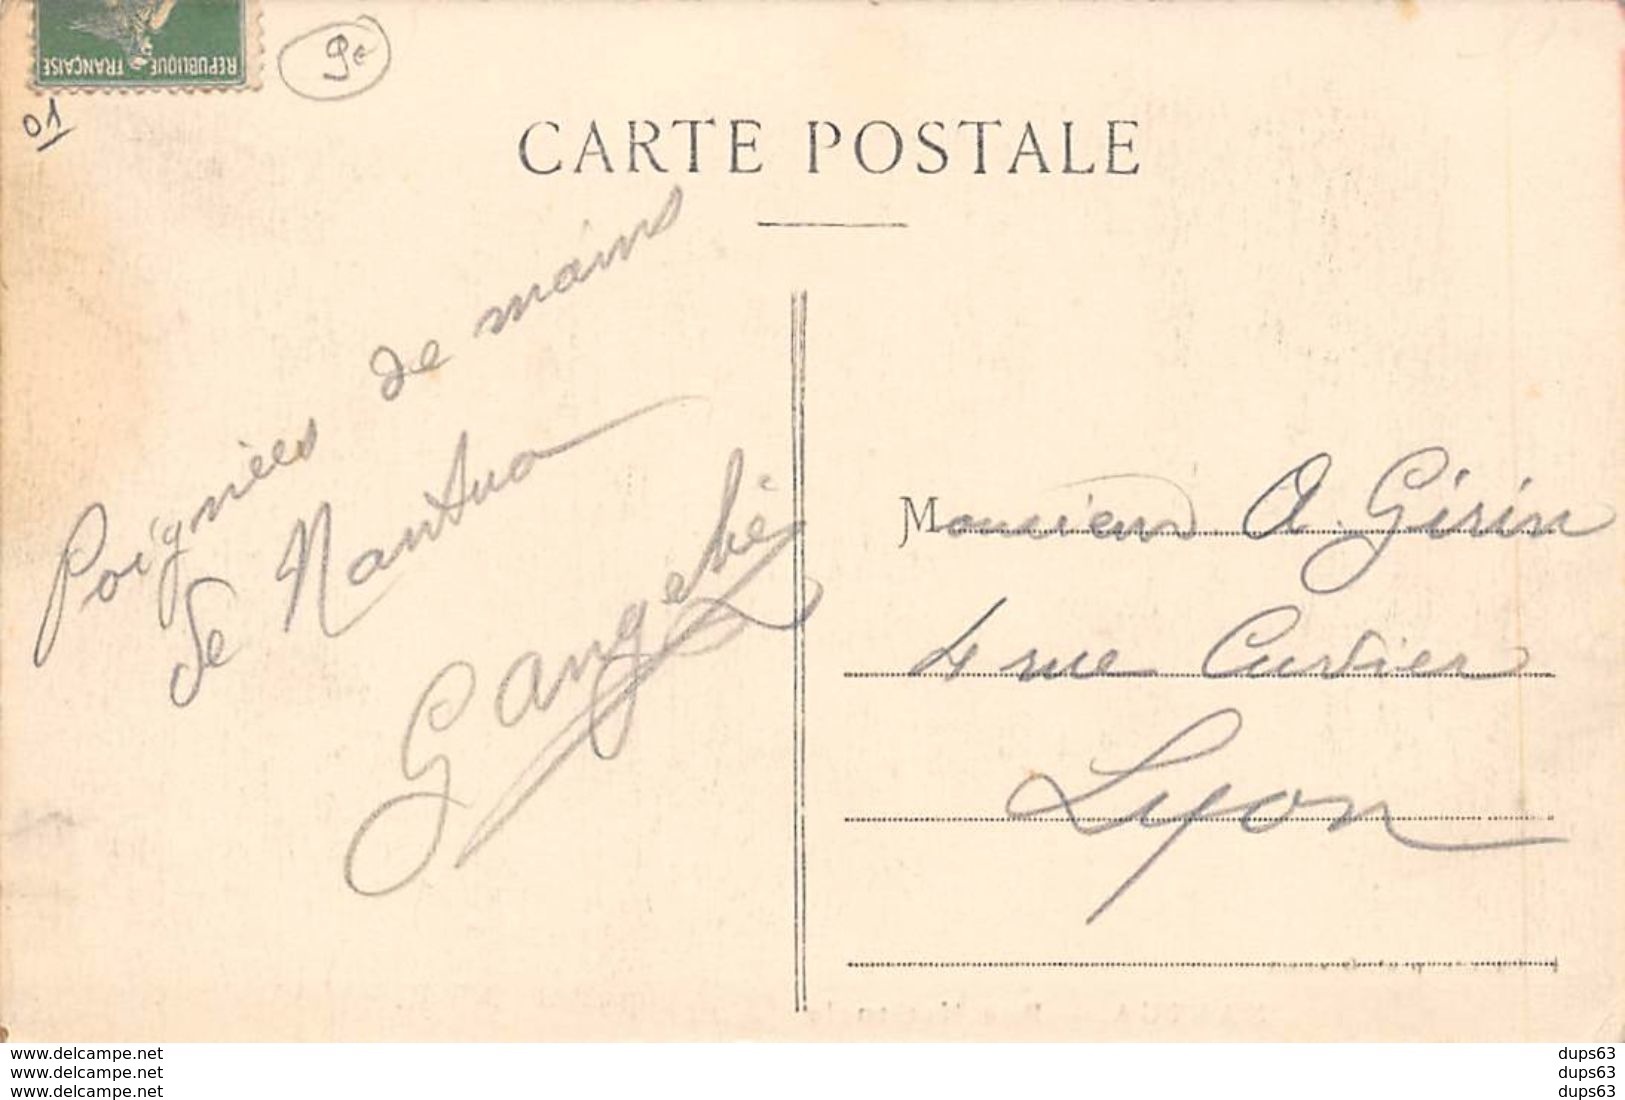 REPUBLIQUE FRANÇAISE
9e
01
CARTE POSTALE
Poignées de mains
de Nantua
Monsieur A. Girin
4 rue Cuvier
Lyon
www.delcampe.net
www.delcampe.net
www.delcampe.net
dups63
dups63
dups63